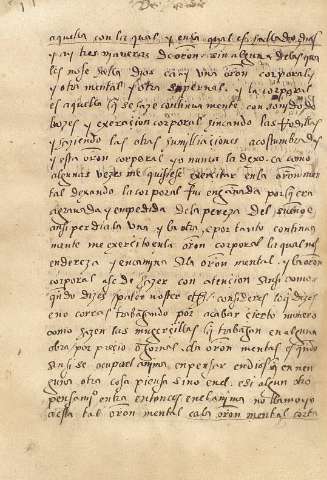 De oracion
aquella con la qual y en la qual es salvado dios
y ay tres maneras de oron sin alguna de las qua
les no se halla dios ca ay una oron corporal
y otra mental y otra supernal. y la corporal
es aquella q se haze continuamente con sonido de
bozes y exercicio corporal hincando las Rodillas
y haziendo las otras humiliaciones acostumbradas
y esta oron corporal yo nunca la dexo. ca como
algunas vezes me quisiese exercitar en la oron men
tal dexando la corporal fui engañada por q era
agravada y empedida de la pereza del sueño e
ansi perdia la una y la otra, e por tanto continua
mente me exercito en la oron corporal la qual nos
endereza y encamina a la oron mental. y la oron
corporal a se de hazer con atencion ansi como
qndo dizes pater noster etc. consideres lo q dizes
e no corras trabajando por acabar cierto numero
como hazen las mugercillas q trabajan en alguna
obra por precio o jornal. la oron mental es qndo
ansi se ocupa el anima en pensar en dios q en nen
guna otra cosa piensa sino en el. e si algun otro
pensami° entra entonces en el anima no llamo yo
a esta tal oron mental ca la oron mental corta